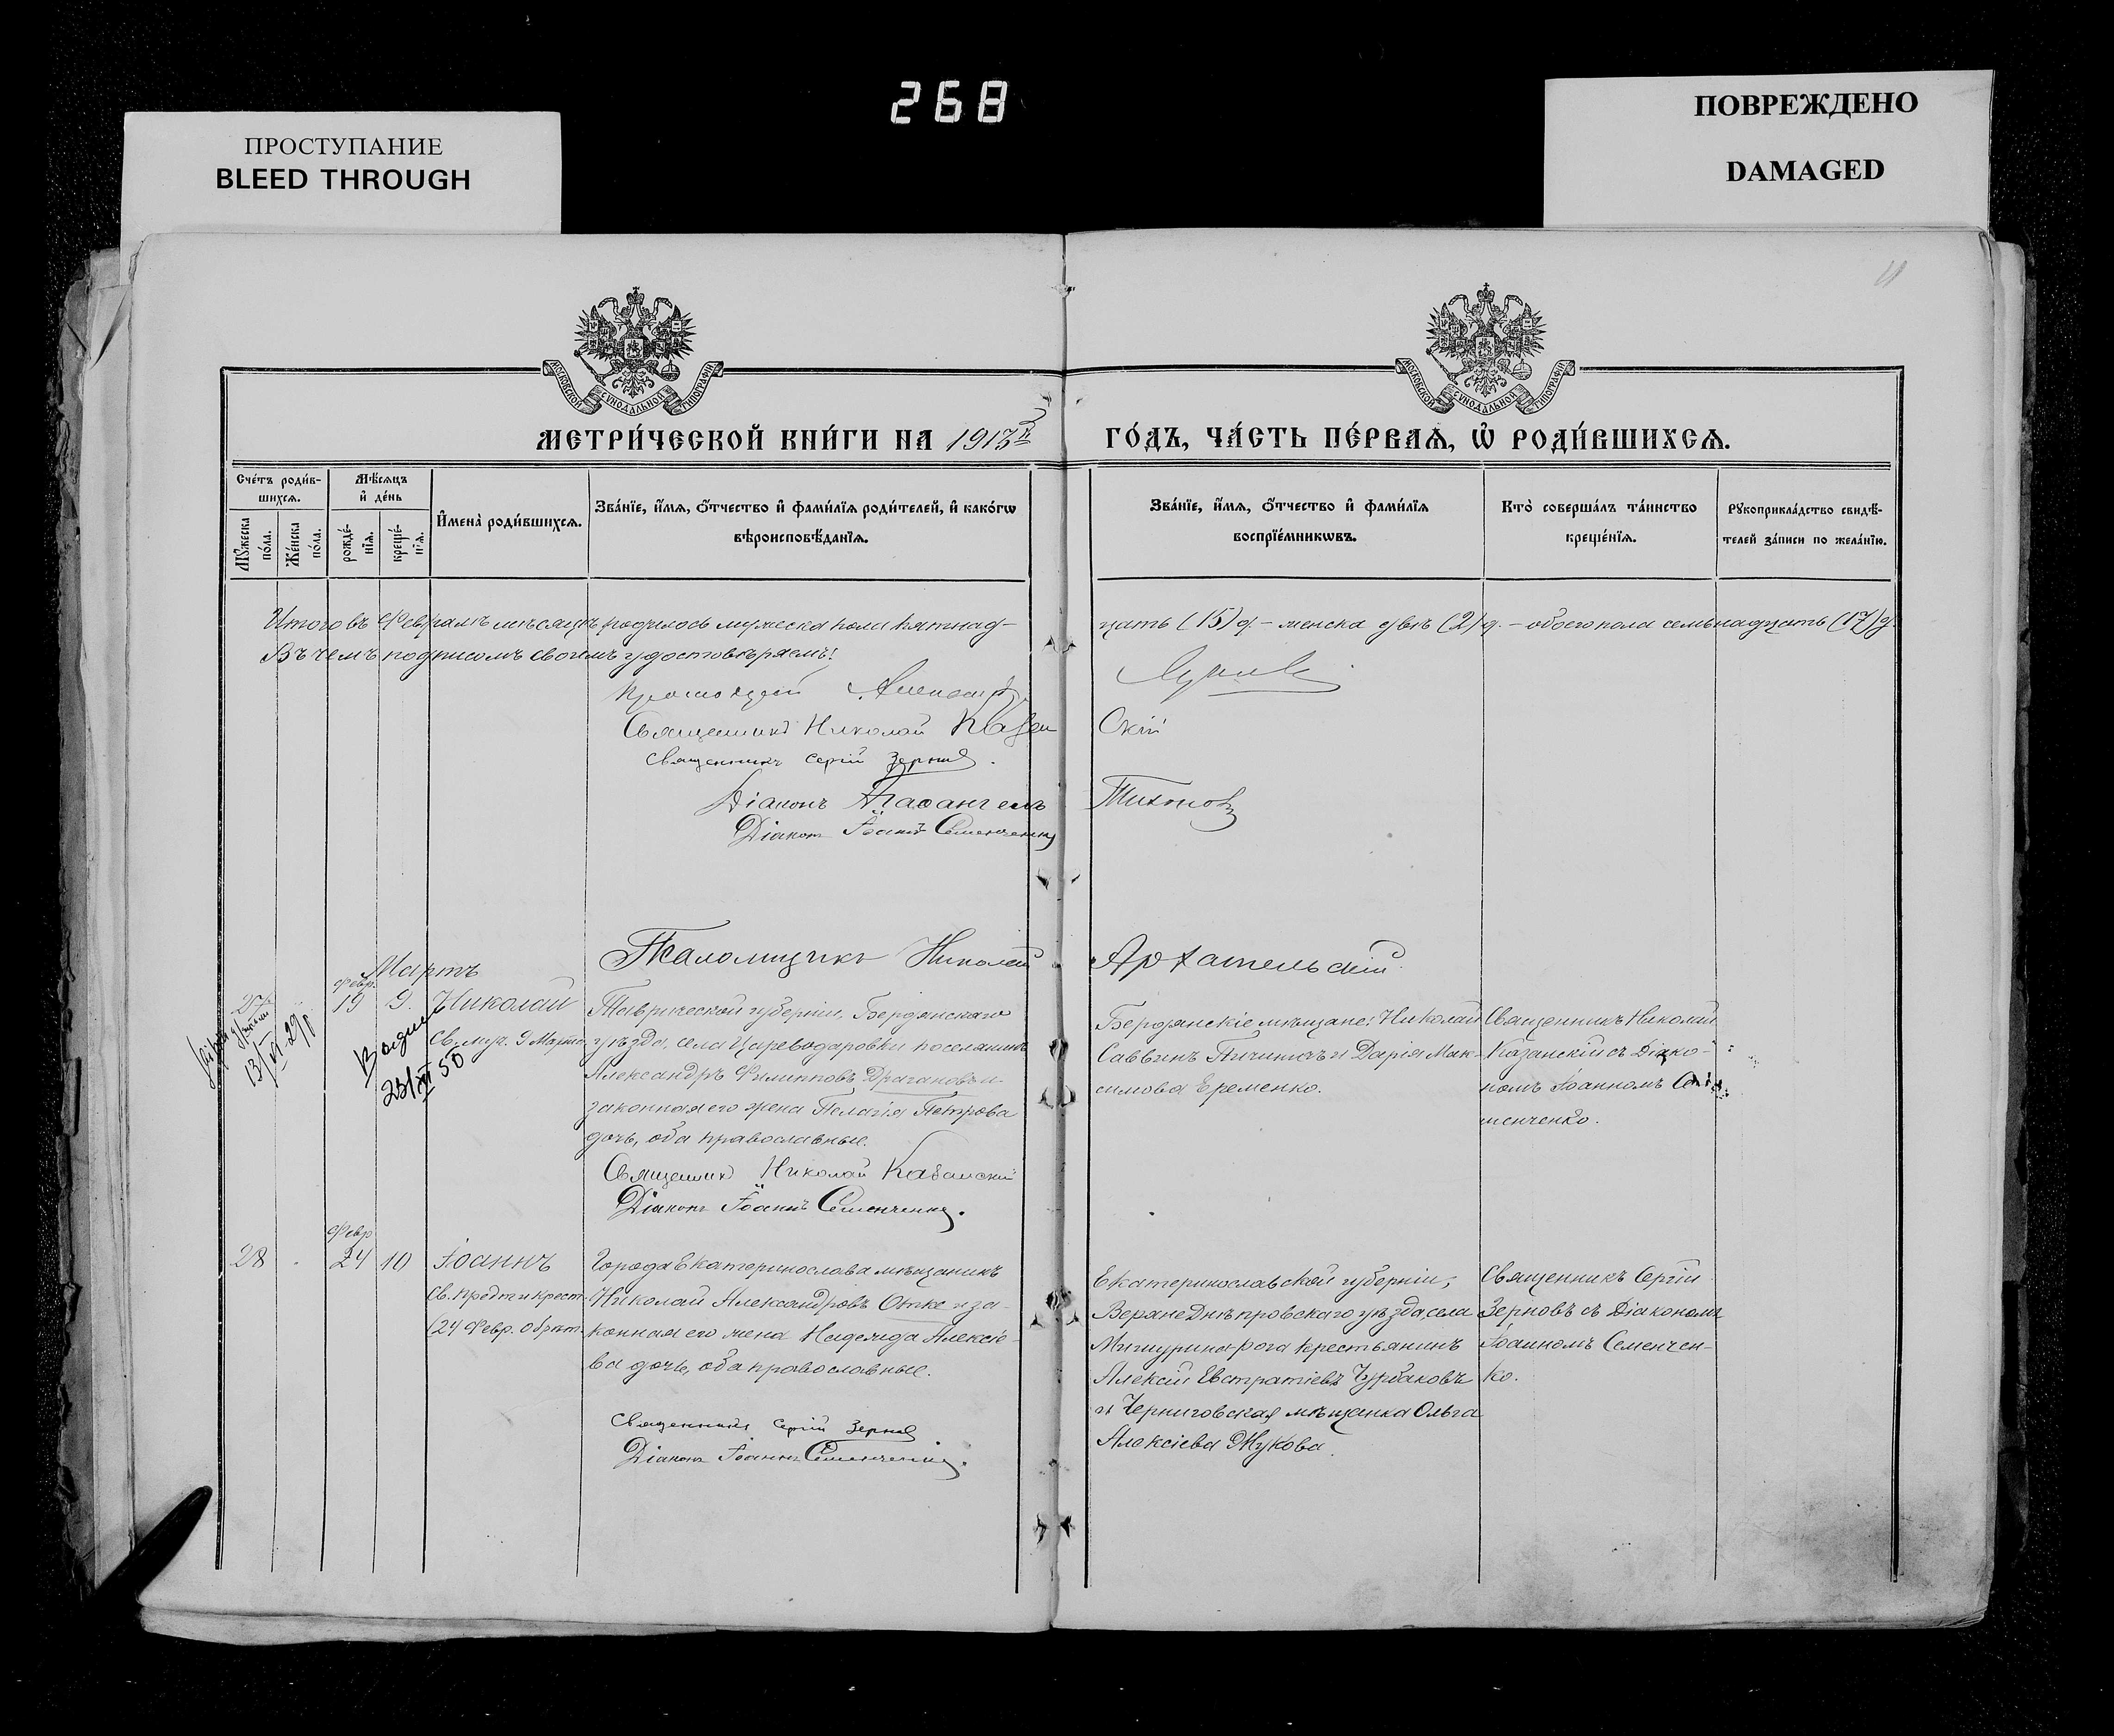 268
ПРОСТУПАНИЕ
BLEED THROUGH
ПОВРЕЖДЕНО
DAMAGED
МОСКОВСКОЙ СѴНОДАЛЬНОЙ ТИПОГРАФІИ
МОСКОВСКОЙ СѴНОДАЛЬНОЙ ТИПОГРАФІИ
МЕТРИ́ЧЕСКОЙ КНИ́ГИ НА 1913й ГО́ДЪ, ЧА́СТЬ ПЕ́РВАѦ, Ѽ РОДИ́ВШИХСѦ.
Сче́тъ роди́в-
шихсѧ.
Мѹ́жеска
по́ла.
Же́нска
по́ла.
Мѣ́сѧцъ
и҆ де́нь
рожде́-
нїѧ.
креще́-
нїѧ.
И҆мена̀ роди́вшихсѧ.
Зва́нїе, и҆́мѧ, ѻ҆́тчество и҆ фами́лїѧ роди́телей, и҆ како́гѡ
вѣроисповѣ́данїѧ.
Зва́нїе, и҆́мѧ, ѻ҆́тчество и҆ фами́лїѧ
воспрїе́мникѡвъ.
Кто̀ соверша́лъ та́инство
креще́нїѧ.
Рѹкоприкла́дство свидѣ́-
телей за́писи по жела́нїю.
Итого въ Февралѣ мѣсяцѣ родилось мужеска пола пятнад-
цать (15) д. – женска двѣ (2) д. – обоего пола семьнадцать (17) д.
Въ чемъ подписомъ своимъ удостовѣряемъ:
Протоіерей Александръ
Священникъ Николай Казан
скій
Священникъ Сергій Зерновъ.
Діаконъ Агаѳангелъ Тихоновъ
Діаконъ Іоаннъ Семенченко
Псаломщикъ Николай Архангельскій.
Мартъ
27
13/VI-29
Февр.
19 9. Николай
Св. муч. 9 Марта
Выдано
50
Таврической губерніи, Бердянскаго
уѣзда, села Цареводаровки поселянинъ
Александръ Филипповъ Драгановъ и
законная его жена Пелагія Петрова
дочь, оба православные.
Священникъ Николай Казанскій
Діаконъ Іоаннъ Семенченко.
Бердянскіе мѣщане: Николай
Саввинъ и Дарія Мак-
симова Еременко.
Священникъ Николай
Казанскій съ Діако-
номъ Іоанномъ Се-
менченко.
Февр
28 24 10 Іоаннъ
Св. Предт. и Крест.
(24 Февр. Обрѣт.
Города Екатеринослава мѣщанинъ
Николай Александровъ Отке и за-
конная его жена Надежда Алексіе-
ва дочь, оба православные.
Священникъ Сергій Зерновъ
Діаконъ Іоаннъ Семенченко.
Екатеринославской губерніи,
Верхнеднѣпровскаго уѣзда, села
Мишурина-рога крестьянинъ
Алексій Евстратіевъ Чурбаковъ
и Черниговская мѣщанка Ольга
Алексіева Жукова.
Священникъ Сергій
Зерновъ съ Діакономъ
Іоанномъ Семенчен-
ко.